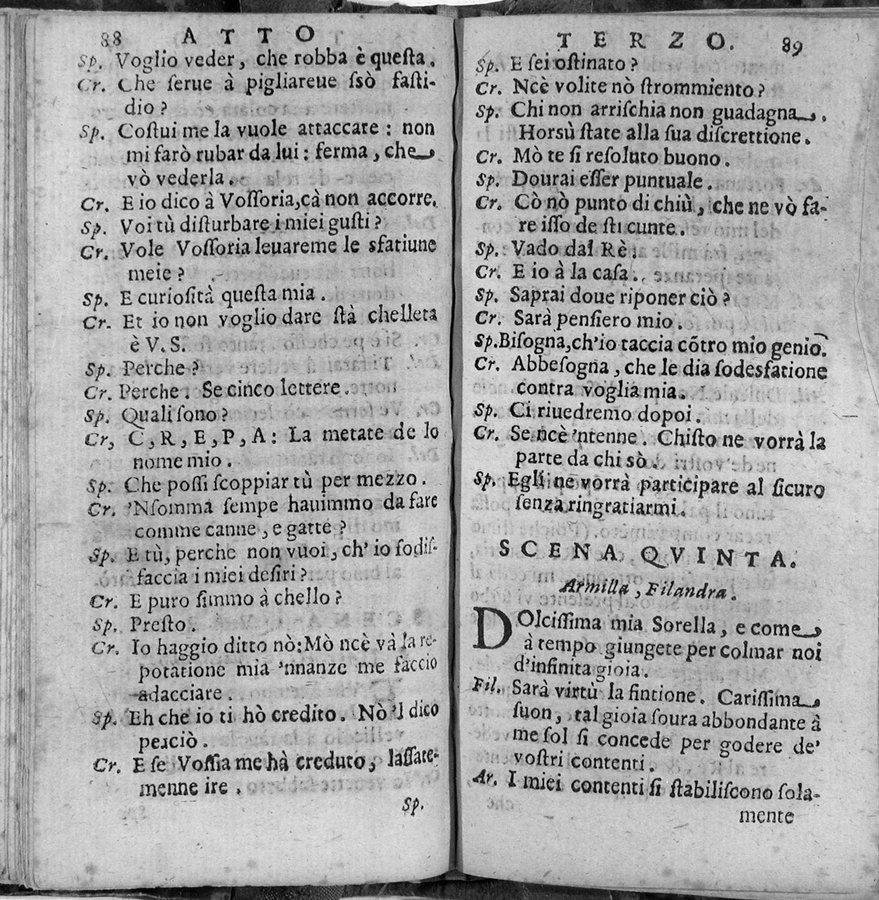 88 ATTO
Sp. Voglio veder, che robba è queſta.
Cr. Che ſerue à pigliareue ſsò faſti-
dio?
Sp. Coſtui me la vuole attaccare: non
mi farò rubar da lui: ferma, che
vò vederla.
Cr. E io dico à Voſſoria, cà non accorre.
Sp. Voi tù diſturbare i miei guſti?
Cr. Vole Voſſoria leuareme le sfatiune
meie?
Sp. E curioſità queſta mia.
Cr. Et io non voglio dare ſtà chelleta
è V.S.
Sp. Perche?
Cr. Perche. Se cinco lettere.
Sp. Quali ſono?
Cr, C, R, E, P, A: La metate de lo
nome mio.
Sp. Che poſſi ſcoppiar tù per mezzo.
Cr. 'Nſomma ſempe hauimmo da fare
comme canne, e gatte?
Sp. E tù, perche non vuoi, ch'io ſodiſ-
faccia i miei deſiri?
Cr. E puro ſimmo à chello?
Sp. Preſto.
Cr. Io haggio ditto nò: Mò ncè và la re-
potatione mia 'nnanze me faccio
adacciare.
Sp. Eh che io ti hò credito. Nò 'l dico
perciò.
Cr. E ſe Voſſia me hà creduto, laſſate-
menne ire.
Sp.
TERZO. 89
Sp. E ſei oſtinato?
Cr. Ncè volite nò ſtrommiento?
Sp. Chi non arriſchia non guadagna.
Horsù ſtate alla ſua diſcrettione.
Cr. Mò te ſi reſoluto buono.
Sp. Dourai eſſer puntuale.
Cr. Cò nò punto di chiù, che ne vò fa-
re iſſo de ſti cunte.
Sp. Vado dal Rè.
Cr. E io à la caſa.
Sp. Saprai doue riponer ciò?
Cr. Sarà penſiero mio.
Sp. Biſogna, ch'io taccia cõtro mio genio.
Cr. Abbeſogna, che le dia ſodesfatione
contra voglia mia.
Sp. Ci riuedremo dopoi.
Cr. Se ncè 'ntenne. Chiſto ne vorrà la
parte da chi sò.
Sp. Egli ne vorrà participare al ſicuro
ſenza ringratiarmi.
SCENA QVINTA.
Armilla, Filandra.
DOlciſſima mia Sorella, e come
à tempo giungete per colmar noi
d'infinita gioia.
Fil. Sarà virtù la fintione. Cariſſima
ſuon, tal gioia ſoura abbondante à
me ſol ſi concede per godere de'
voſtri contenti.
Ar. I miei contenti ſi ſtabiliſcono ſola-
mente